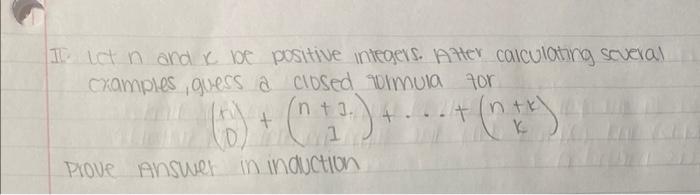 II. Let n and k be positive integers. After calculating several
examples, guess a closed formula for
(n 0) + (n + 1 1) + . . . + (n + k k)
Prove Answer in induction